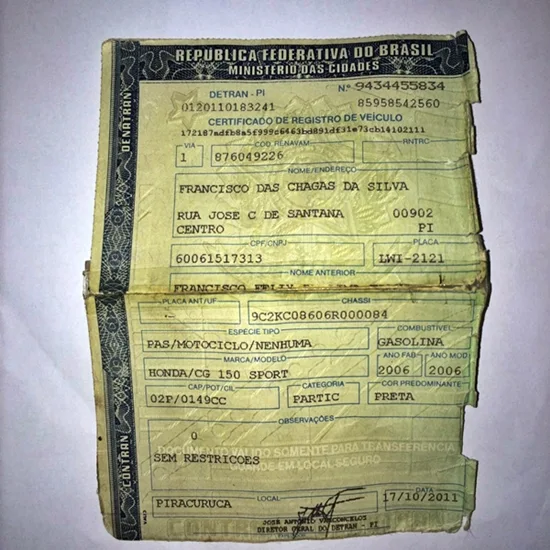 REPÚBLICA FEDERATIVA DO BRASIL
MINISTÉRIO DAS CIDADES
DENATRAN
CONTRAN
DETRAN - PI Nº 9434455834
0120110183241 85958542560
CERTIFICADO DE REGISTRO DE VEÍCULO
VIA COD. RENAVAM RNTRC
1 876049226
NOME/ENDEREÇO
FRANCISCO DAS CHAGAS DA SILVA
RUA JOSE C DE SANTANA 00902
CENTRO PI
CPF/CNPJ PLACA
60061517313 LWI-2121
NOME ANTERIOR
FRANCISCO
PLACA ANT/UF CHASSI
9C2KC08606R000084
ESPÉCIE TIPO COMBUSTÍVEL
PAS/MOTOCICLO/NENHUMA GASOLINA
MARCA/MODELO ANO FAB ANO MOD
HONDA/CG 150 SPORT 2006 2006
CAP/POT/CIL CATEGORIA COR PREDOMINANTE
02P/0149CC PARTIC PRETA
OBSERVAÇÕES
0
DOCUMENTO SOMENTE PARA TRANSFERÊNCIA
SEM RESTRICOES
EM LOCAL SEGURO
LOCAL DATA
PIRACURUCA 17/10/2011
JOSE ANTONIO VASCONCELOS
DIRETOR GERAL DO DETRAN - PI